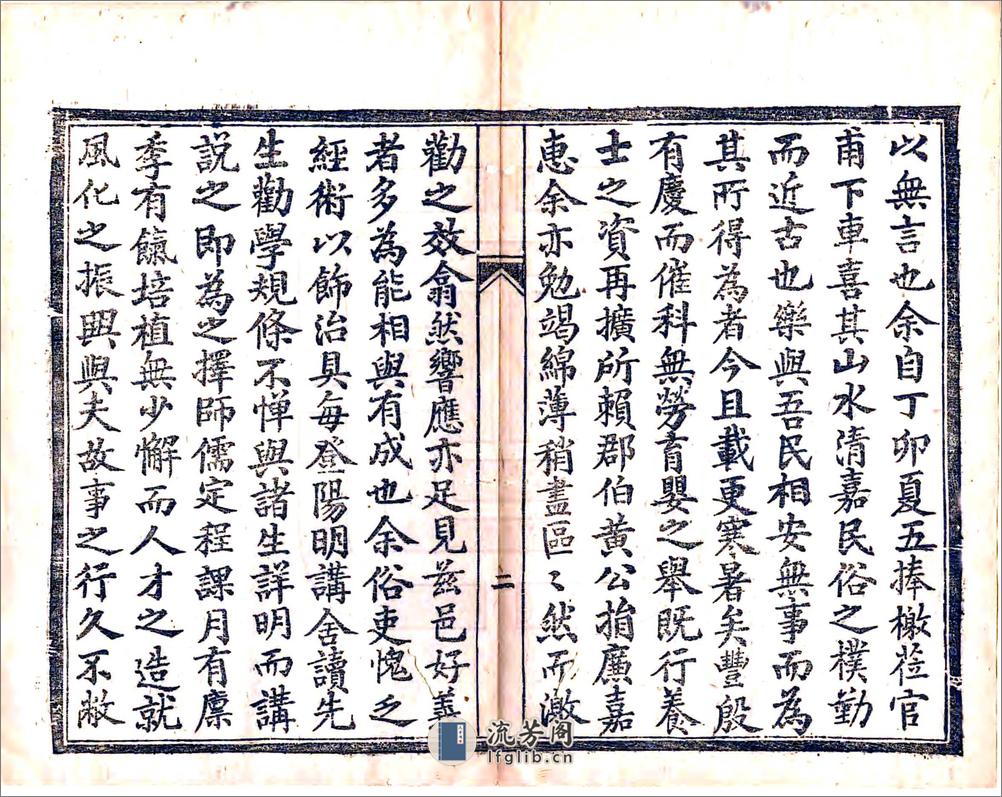 以無言也余自丁卯夏五捧檄莅官
甫下車喜其山水清嘉民俗之樸勤
而近古也樂與吾民相安無事而為
其所得為者今且載更寒暑矣豐殷
有慶而催科無勞育嬰之舉既行養
士之資再擴所賴郡伯黃公捐廉嘉
惠余亦勉竭綿薄稍盡區〻然而激
二
勸之效翕然響應亦足見茲邑好義
者多為能相與有成也余俗吏愧乏
經術以飾治具每登陽明講舍讀先
生勸學規條不憚與諸生詳明而講
說之即為之擇師儒定程課月有廩
季有餼培植無少懈而人才之造就
風化之振興與夫故事之行久不敝
流芳阁
lfglib.cn